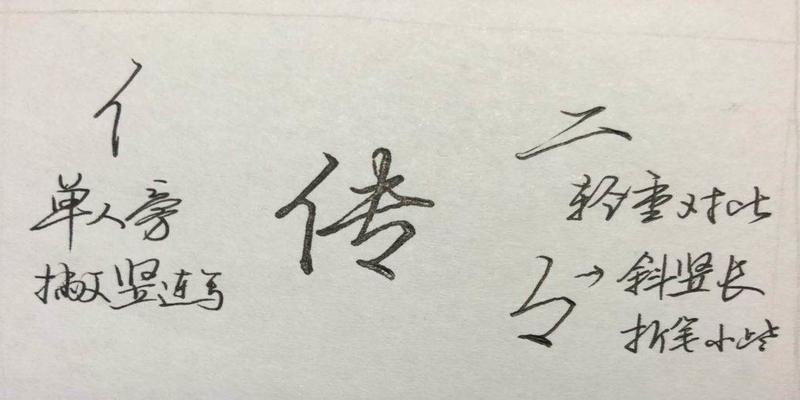 亻
单人旁
撇竖连写
传
二
轻重对比
→斜竖长
折笔小些